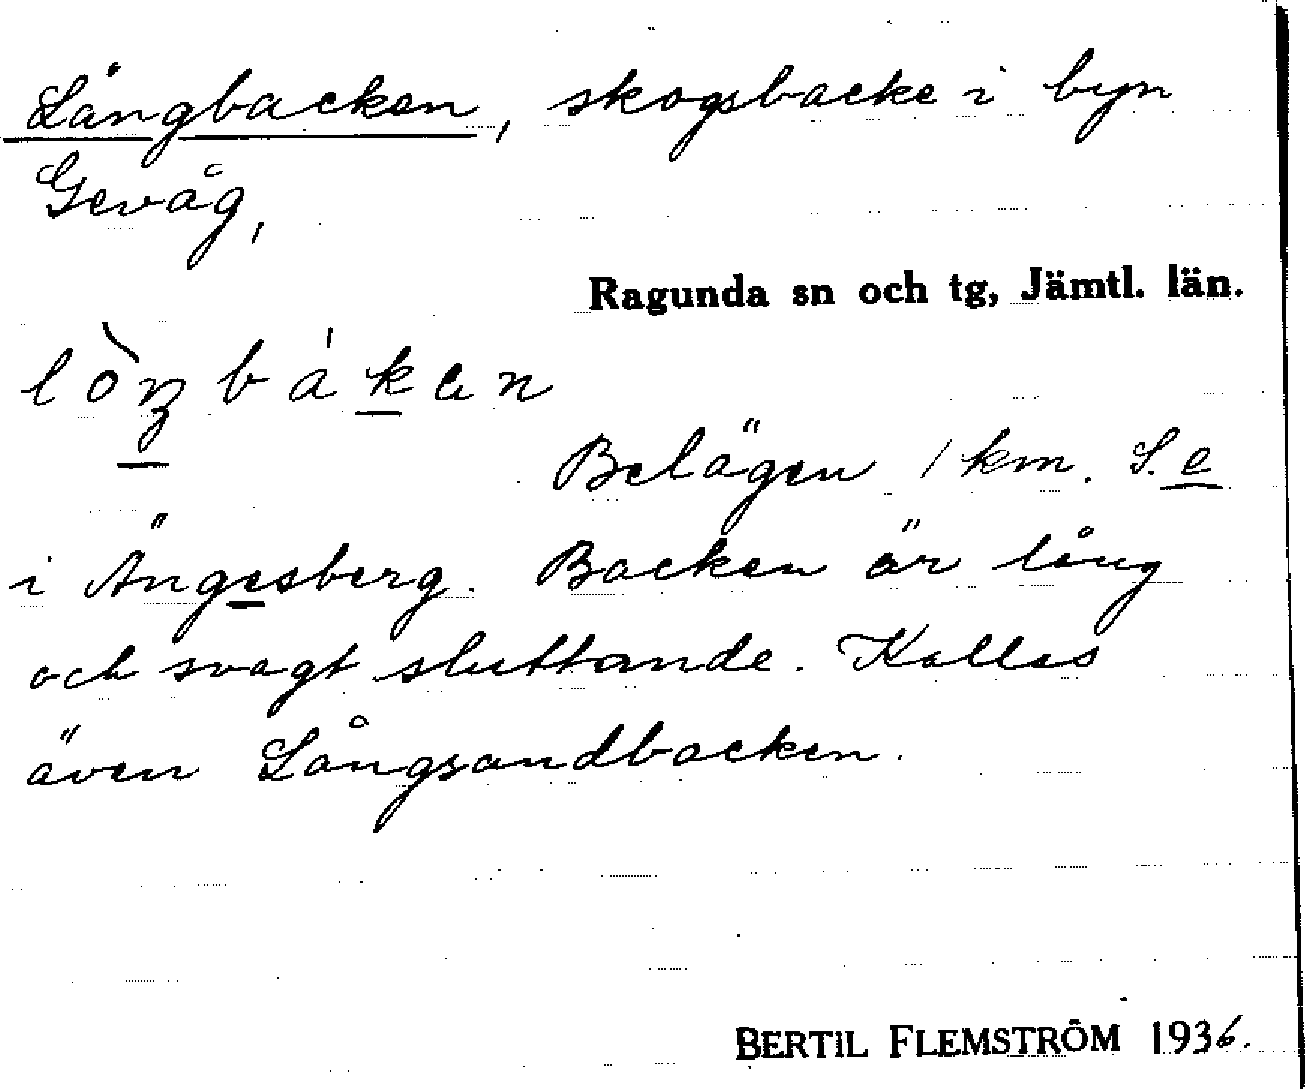 Långbacken, skogsbacke i byn
Gevåg,
Ragunda sn och tg, Jämtl. län.
Belägen 1 km. S. e
i Ängesberg. Backen är lång
och svagt sluttande. Kallas
även Långsandbacken.
BERTIL FLEMSTRÖM 1936.